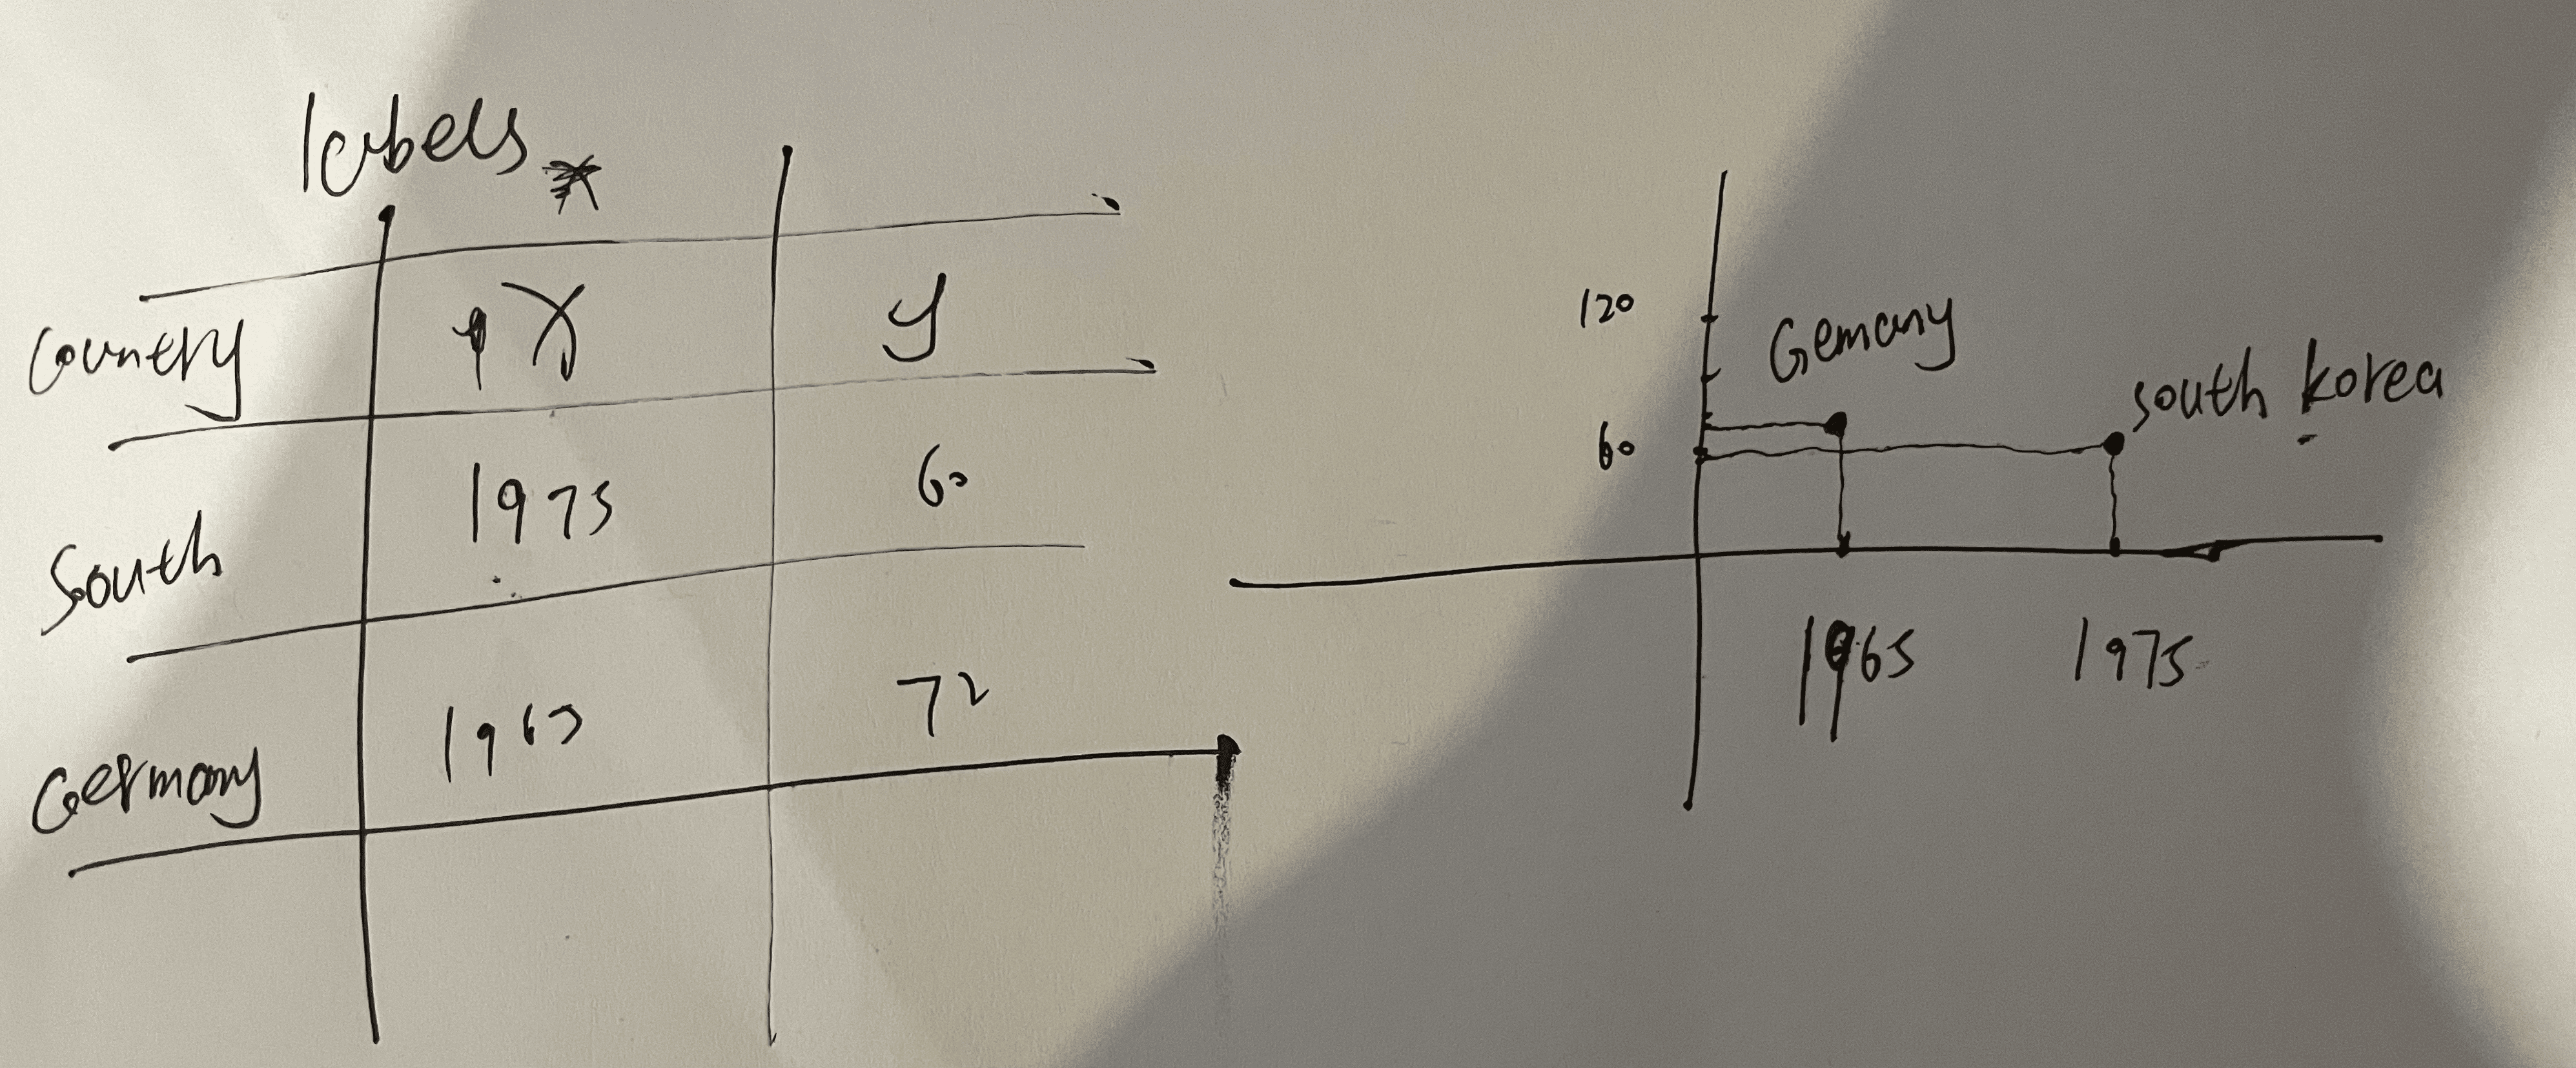 labels
Country X y
South 1975 60
Germany 1965 72
120
Gemany
South korea
60
1965 1975